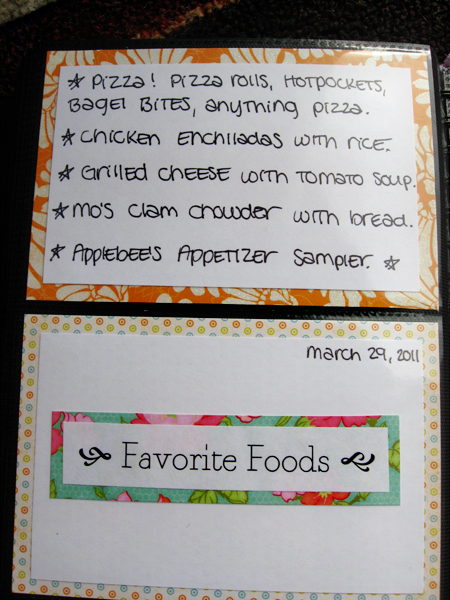 ☆ Pizza! Pizza rolls, Hotpockets,
Bagel Bites, anything pizza.
☆ Chicken Enchiladas with rice.
☆ Grilled cheese with tomato soup.
☆ Mo's clam chowder with bread.
☆ Applebee's Appetizer Sampler. ☆
March 29, 2011
Favorite Foods